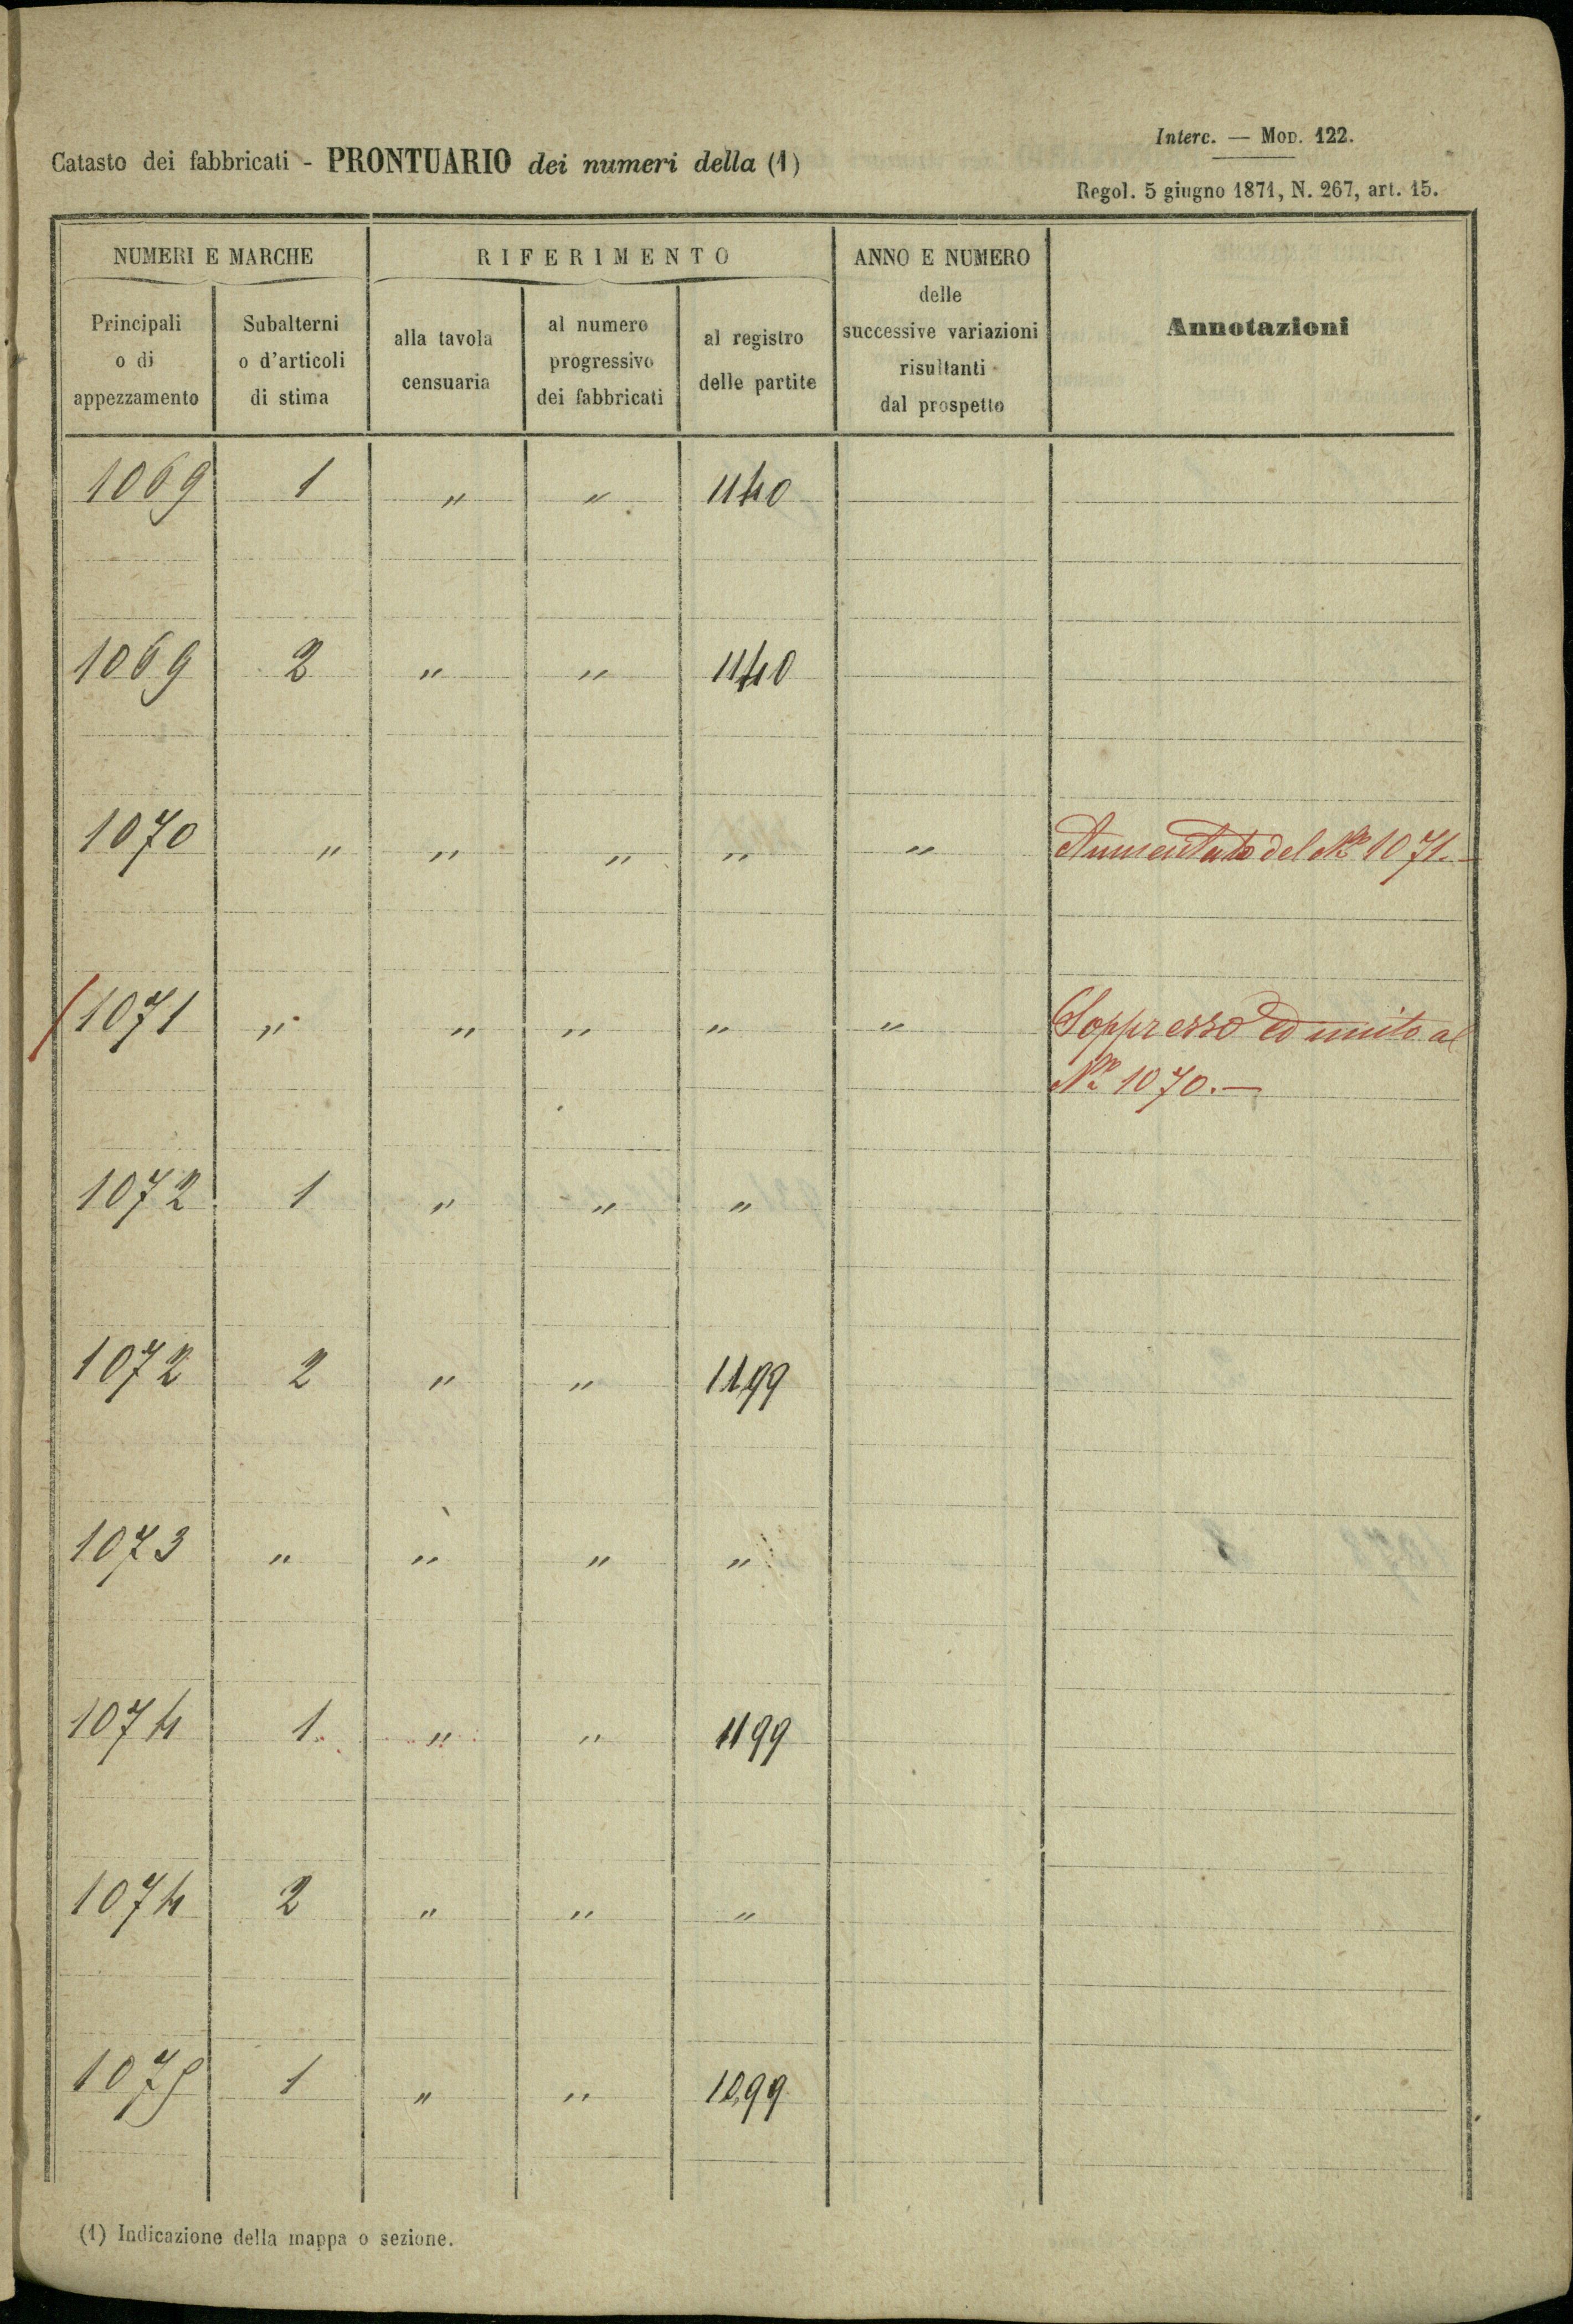 Interc. — Mod. 122.
Catasto dei fabbricati - PRONTUARIO dei numeri della (1)
Regol. 5 giugno 1871, N. 267, art. 15.
NUMERI E MARCHE
RIFERIMENTO
ANNO E NUMERO
delle
successive variazioni
risultanti
dal prospetto
Annotazioni
Principali
o di
appezzamento
Subalterni
o d'articoli
di stima
alla tavola
censuaria
al numero
progressivo
dei fabbricati
al registro
delle partite
1069 1 " " 1140
1069 2 " " 1140
1070 " " " " " Aumentato del No 1071.
1071 " " " " " Soppresso ed unito al
No 1070.—
1072 1 " " "
1072 2 " " 1199
1073 " " " "
1074 1 " " 1199
1074 2 " " "
1075 1 " " 1099
(1) Indicazione della mappa o sezione.